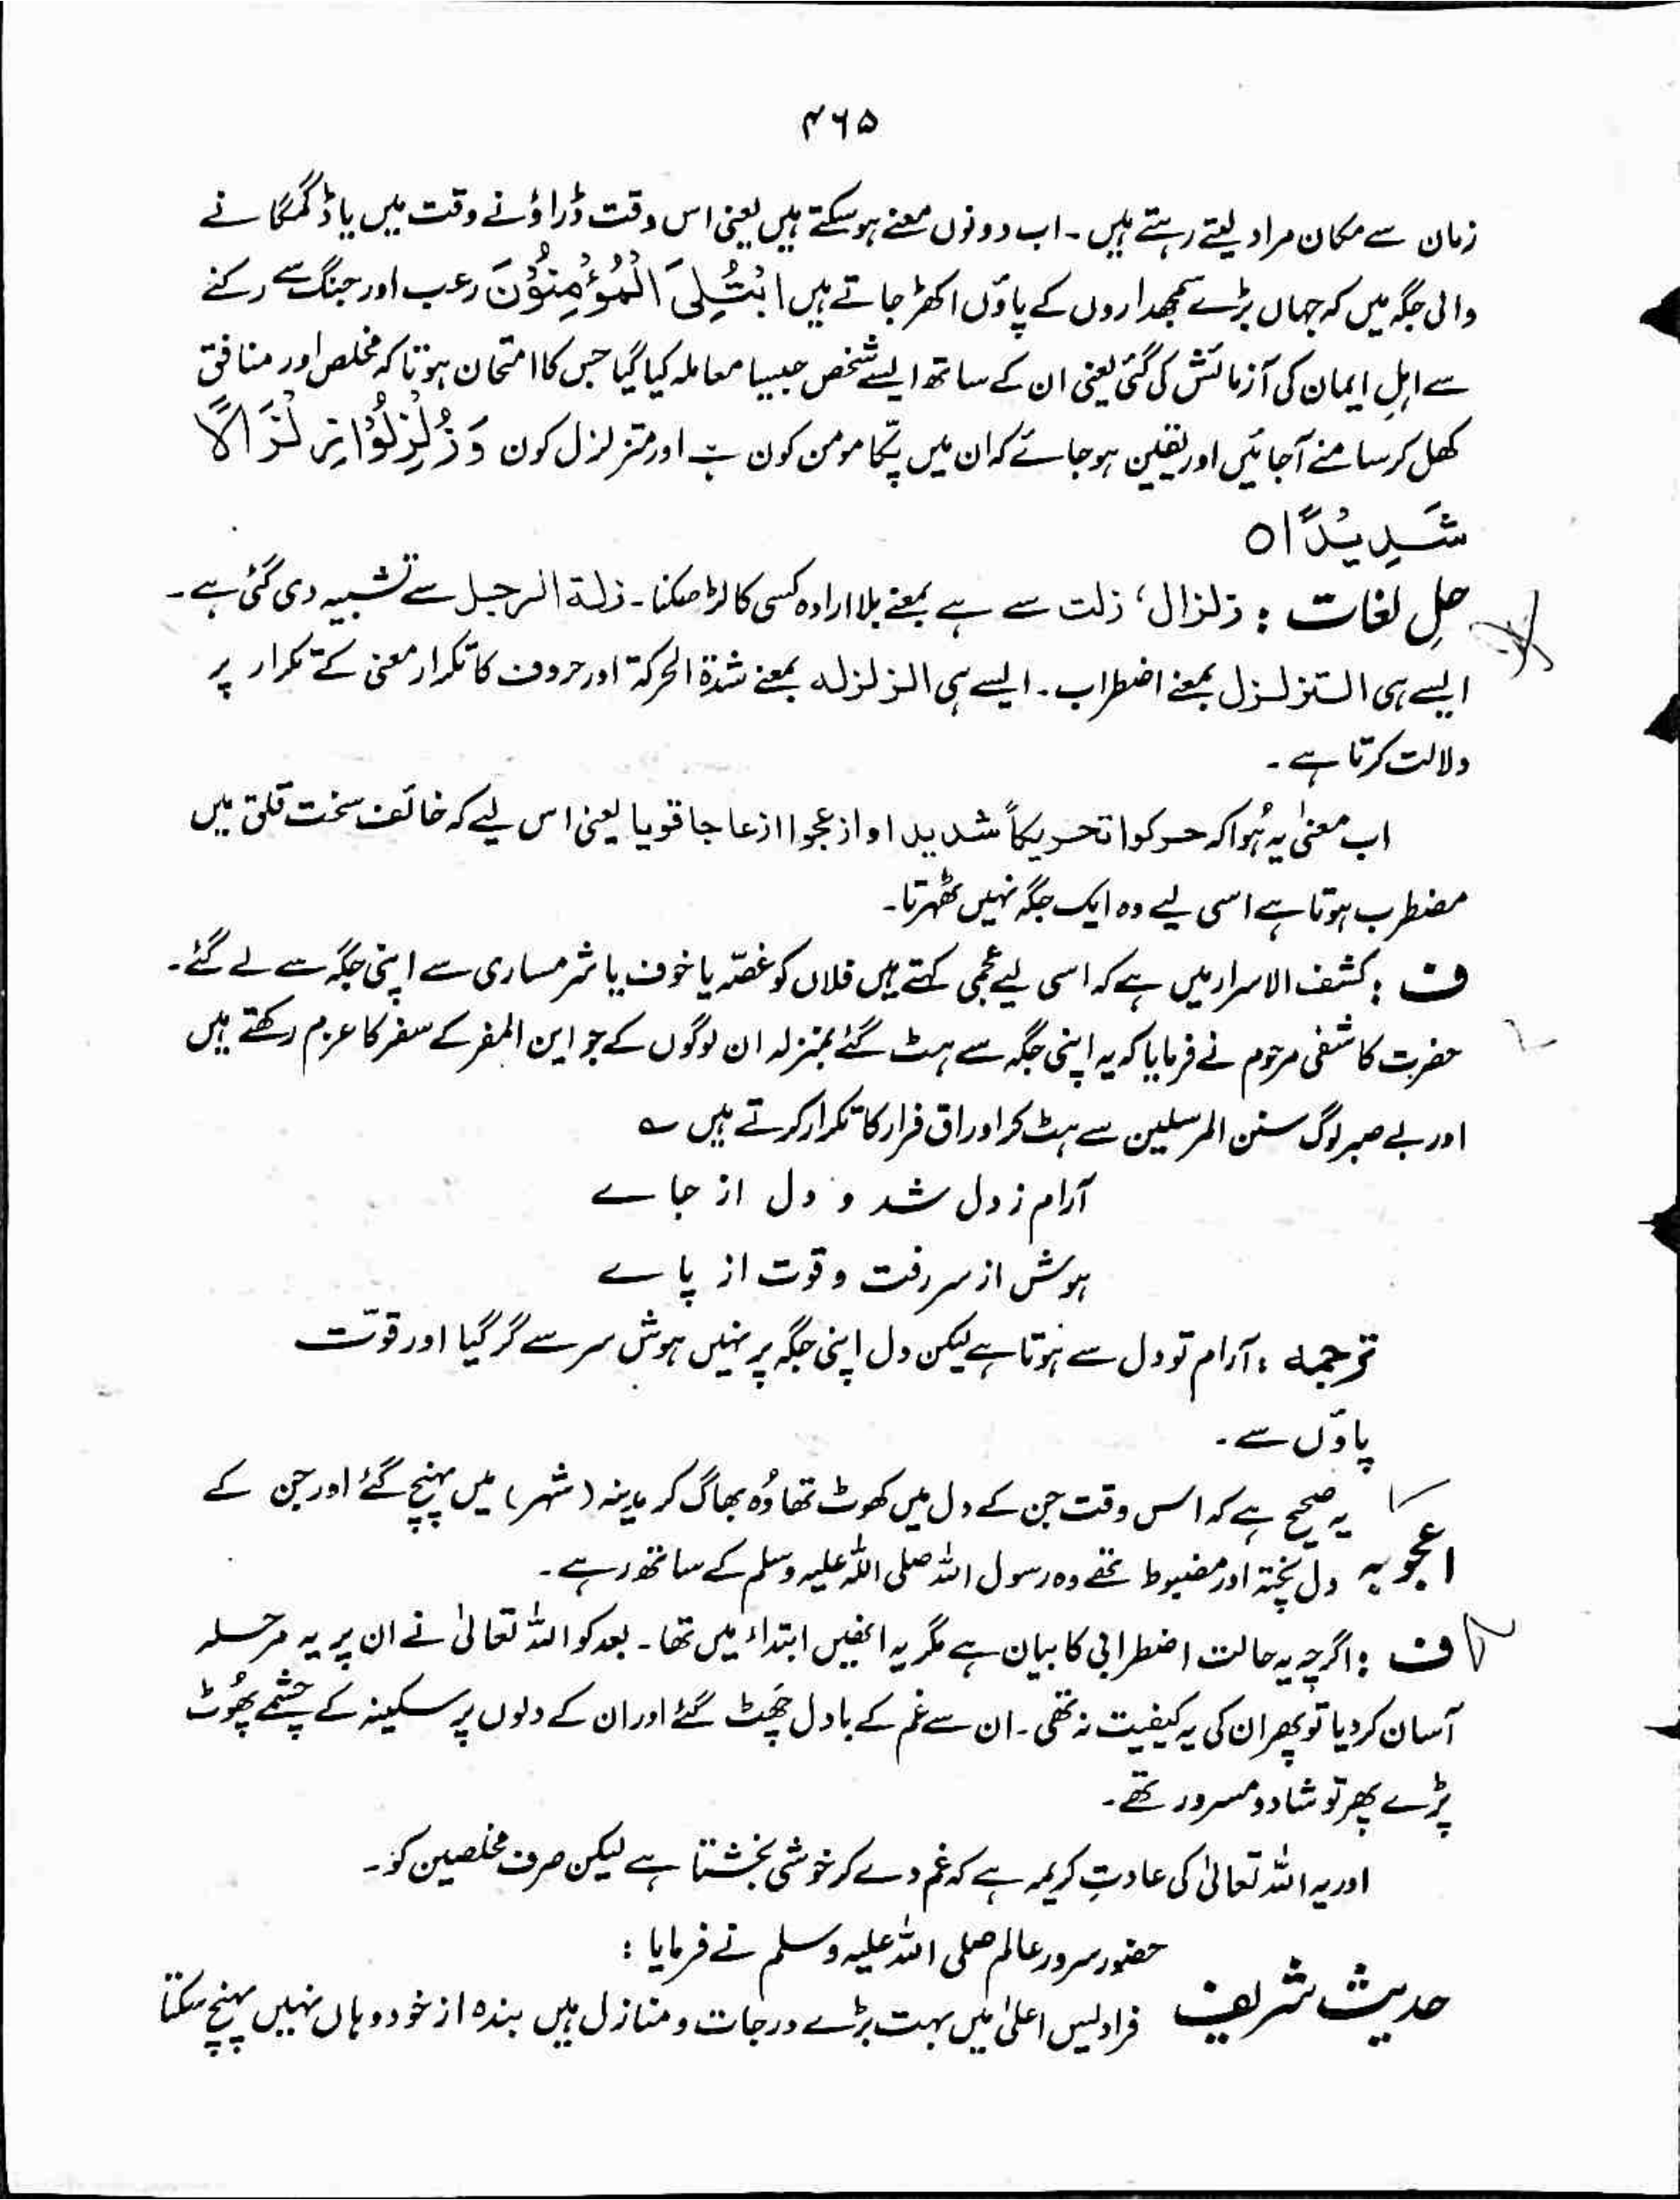 ۴۶۵
زمان سے مکان مراد لیتے رہتے ہیں۔ اب دونوں معنے ہوسکتے ہیں یعنی اس وقت ڈراؤنے وقت میں یا ڈگمگانے
والی جگہ میں کہ جہاں بڑے سمجھداروں کے پاؤں اکھڑ جاتے ہیں ابْتُلِیَ الْمُؤْمِنُوْنَ رعب اور جنگ سے رکنے
سے اہلِ ایمان کی آزمائش کی گئی یعنی ان کے ساتھ ایسے شخص جیسا معاملہ کیا گیا جس کا امتحان ہو تاکہ مخلص اور منافق
کھل کر سامنے آجائیں اور یقین ہوجائے کہ ان میں پکّا مومن کون ہے اور متزلزل کون وَزُلْزِلُوْا زِلْزَالًا
شَدِیْدًا ○
حلِ لغات : زلزال، زلت سے ہے بمعنے بلا ارادہ کسی کا لڑھکنا۔ زلۃ الرجل سے تشبیہ دی گئی ہے۔
ایسے ہی التزلزل بمعنے اضطراب۔ ایسے ہی الزلزلہ بمعنے شدۃ الحرکۃ اور حروف کا تکرار معنی کے تکرار پر
دلالت کرتا ہے۔
اب معنیٰ یہ ہُوا کہ حرکوا تحریکاً شدیدا وازعجوا ازعاجا قویا یعنی اس لیے کہ خائف سخت قلق میں
مضطرب ہوتا ہے اسی لیے وہ ایک جگہ نہیں ٹھہرتا۔
ف : کشف الاسرار میں ہے کہ اسی لیے عجمی کہتے ہیں فلاں کو غصّہ یا خوف یا شرمساری سے اپنی جگہ سے لے گئے۔
حضرت کاشفی مرحوم نے فرمایا کہ یہ اپنی جگہ سے ہٹ گئے بمنزلہ ان لوگوں کے جو این المفر کے سفر کا عزم رکھتے ہیں
اور بے صبر لوگ سنن المرسلین سے ہٹ کر اوراق فرار کا تکرار کرتے ہیں ؎
آرام ز دل شد و دل از جاے
ہوش از سر رفت و قوت از پاے
ترجمہ : آرام تو دل سے ہوتا ہے لیکن دل اپنی جگہ پر نہیں ہوش سر سے گر گیا اور قوّت
پاؤں سے۔
اعجوبہ یہ صحیح ہے کہ اس وقت جن کے دل میں کھوٹ تھا وُہ بھاگ کر مدینہ (شہر) میں پہنچ گئے اور جن کے
دل پختہ اور مضبوط تھے وہ رسول اللہ صلی اللہ علیہ وسلم کے ساتھ رہے۔
ف : اگرچہ یہ حالت اضطرابی کا بیان ہے مگر یہ انھیں ابتداء میں تھا۔ بعد کو اللہ تعالیٰ نے ان پر یہ مرحلہ
آسان کردیا تو پھر ان کی یہ کیفیت نہ تھی۔ ان سے غم کے بادل چَھٹ گئے اور ان کے دلوں پر سکینہ کے چشمے پھُوٹ
پڑے پھر تو شاد و مسرور تھے۔
اور یہ اللہ تعالیٰ کی عادتِ کریمہ ہے کہ غم دے کر خوشی بخشتا ہے لیکن صرف مخلصین کو۔
حدیث شریف حضور سرور عالم صلی اللہ علیہ وسلم نے فرمایا :
فرادیس اعلیٰ میں بہت بڑے درجات و منازل ہیں بندہ از خود وہاں نہیں پہنچ سکتا